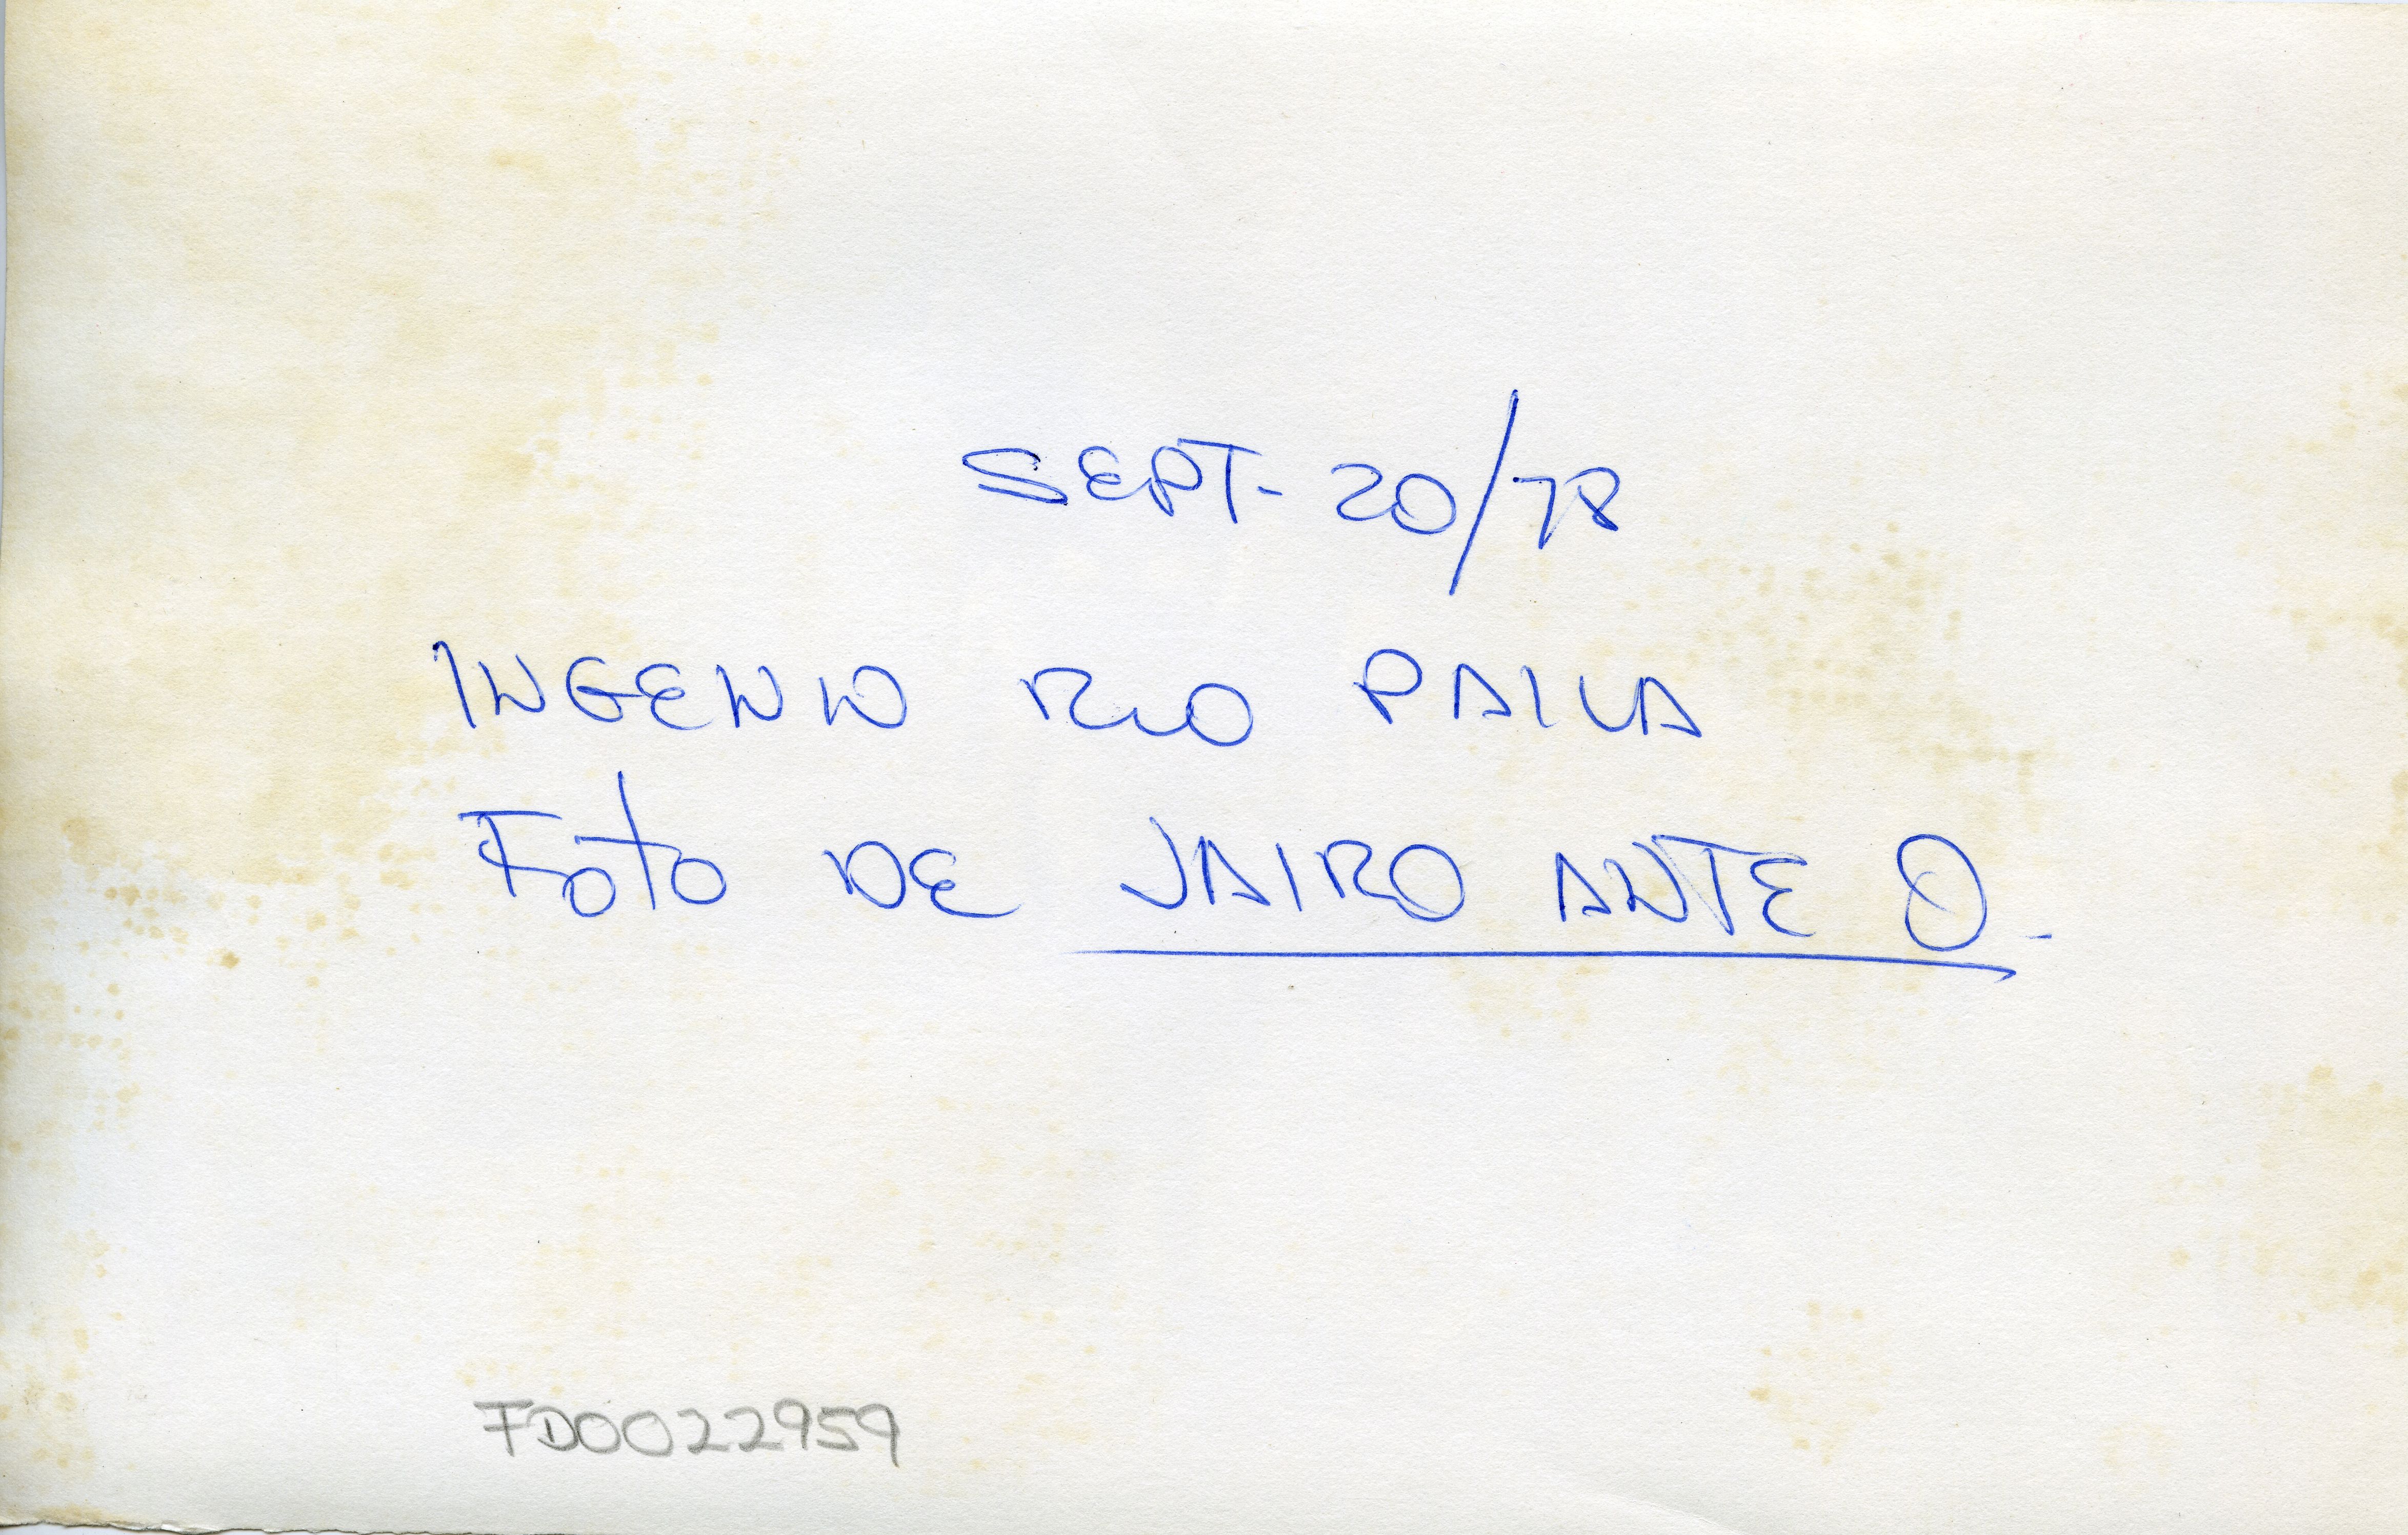 SEPT- 20/78
INGENIO RIO PAILA
Foto DE JAIRO ANTE O.
FD0022959